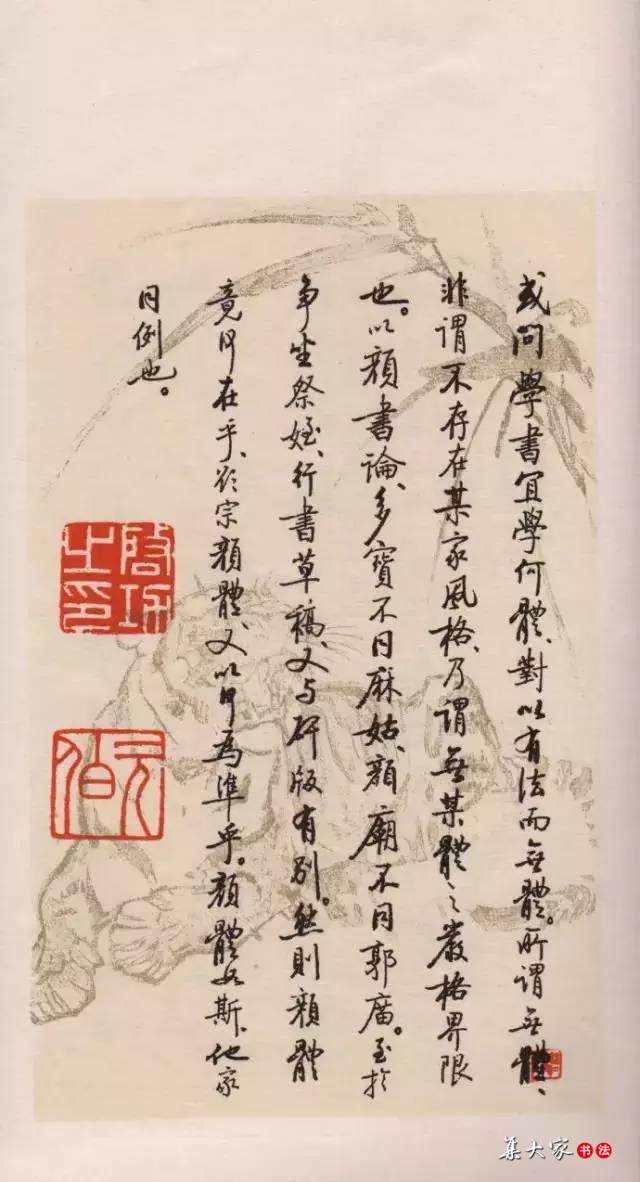 或问學書宜學何體、對以有法而無體。所謂無體、
非謂不存在某家風格、乃謂無某體之嚴格界限
也。以顏書論、多寶不同麻姑、顏廟不同郭廟。至於
争坐祭姪、行書草稿、又与碑版有别。然則顏體
竟何在乎、欲宗顏體、又以何為準乎。顏體如斯、他家
同例也。
啓功之印
元伯
集大家书法